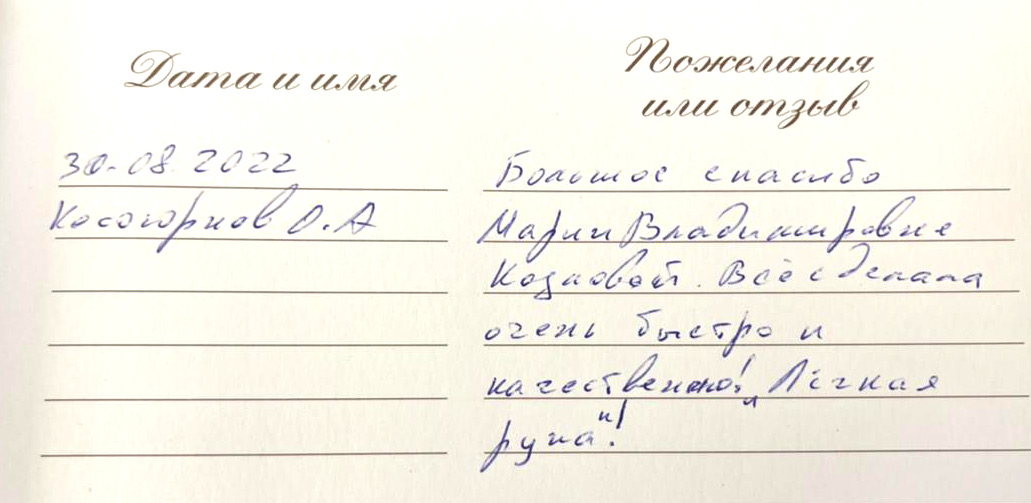 Дата и имя
30.08.2022
Косогорнов О.А
Пожелания
или отзыв
Большое спасибо
Марии Владимировне
Козловой. Всё сделала
очень быстро и
качественно! „Лёгкая
рука"!